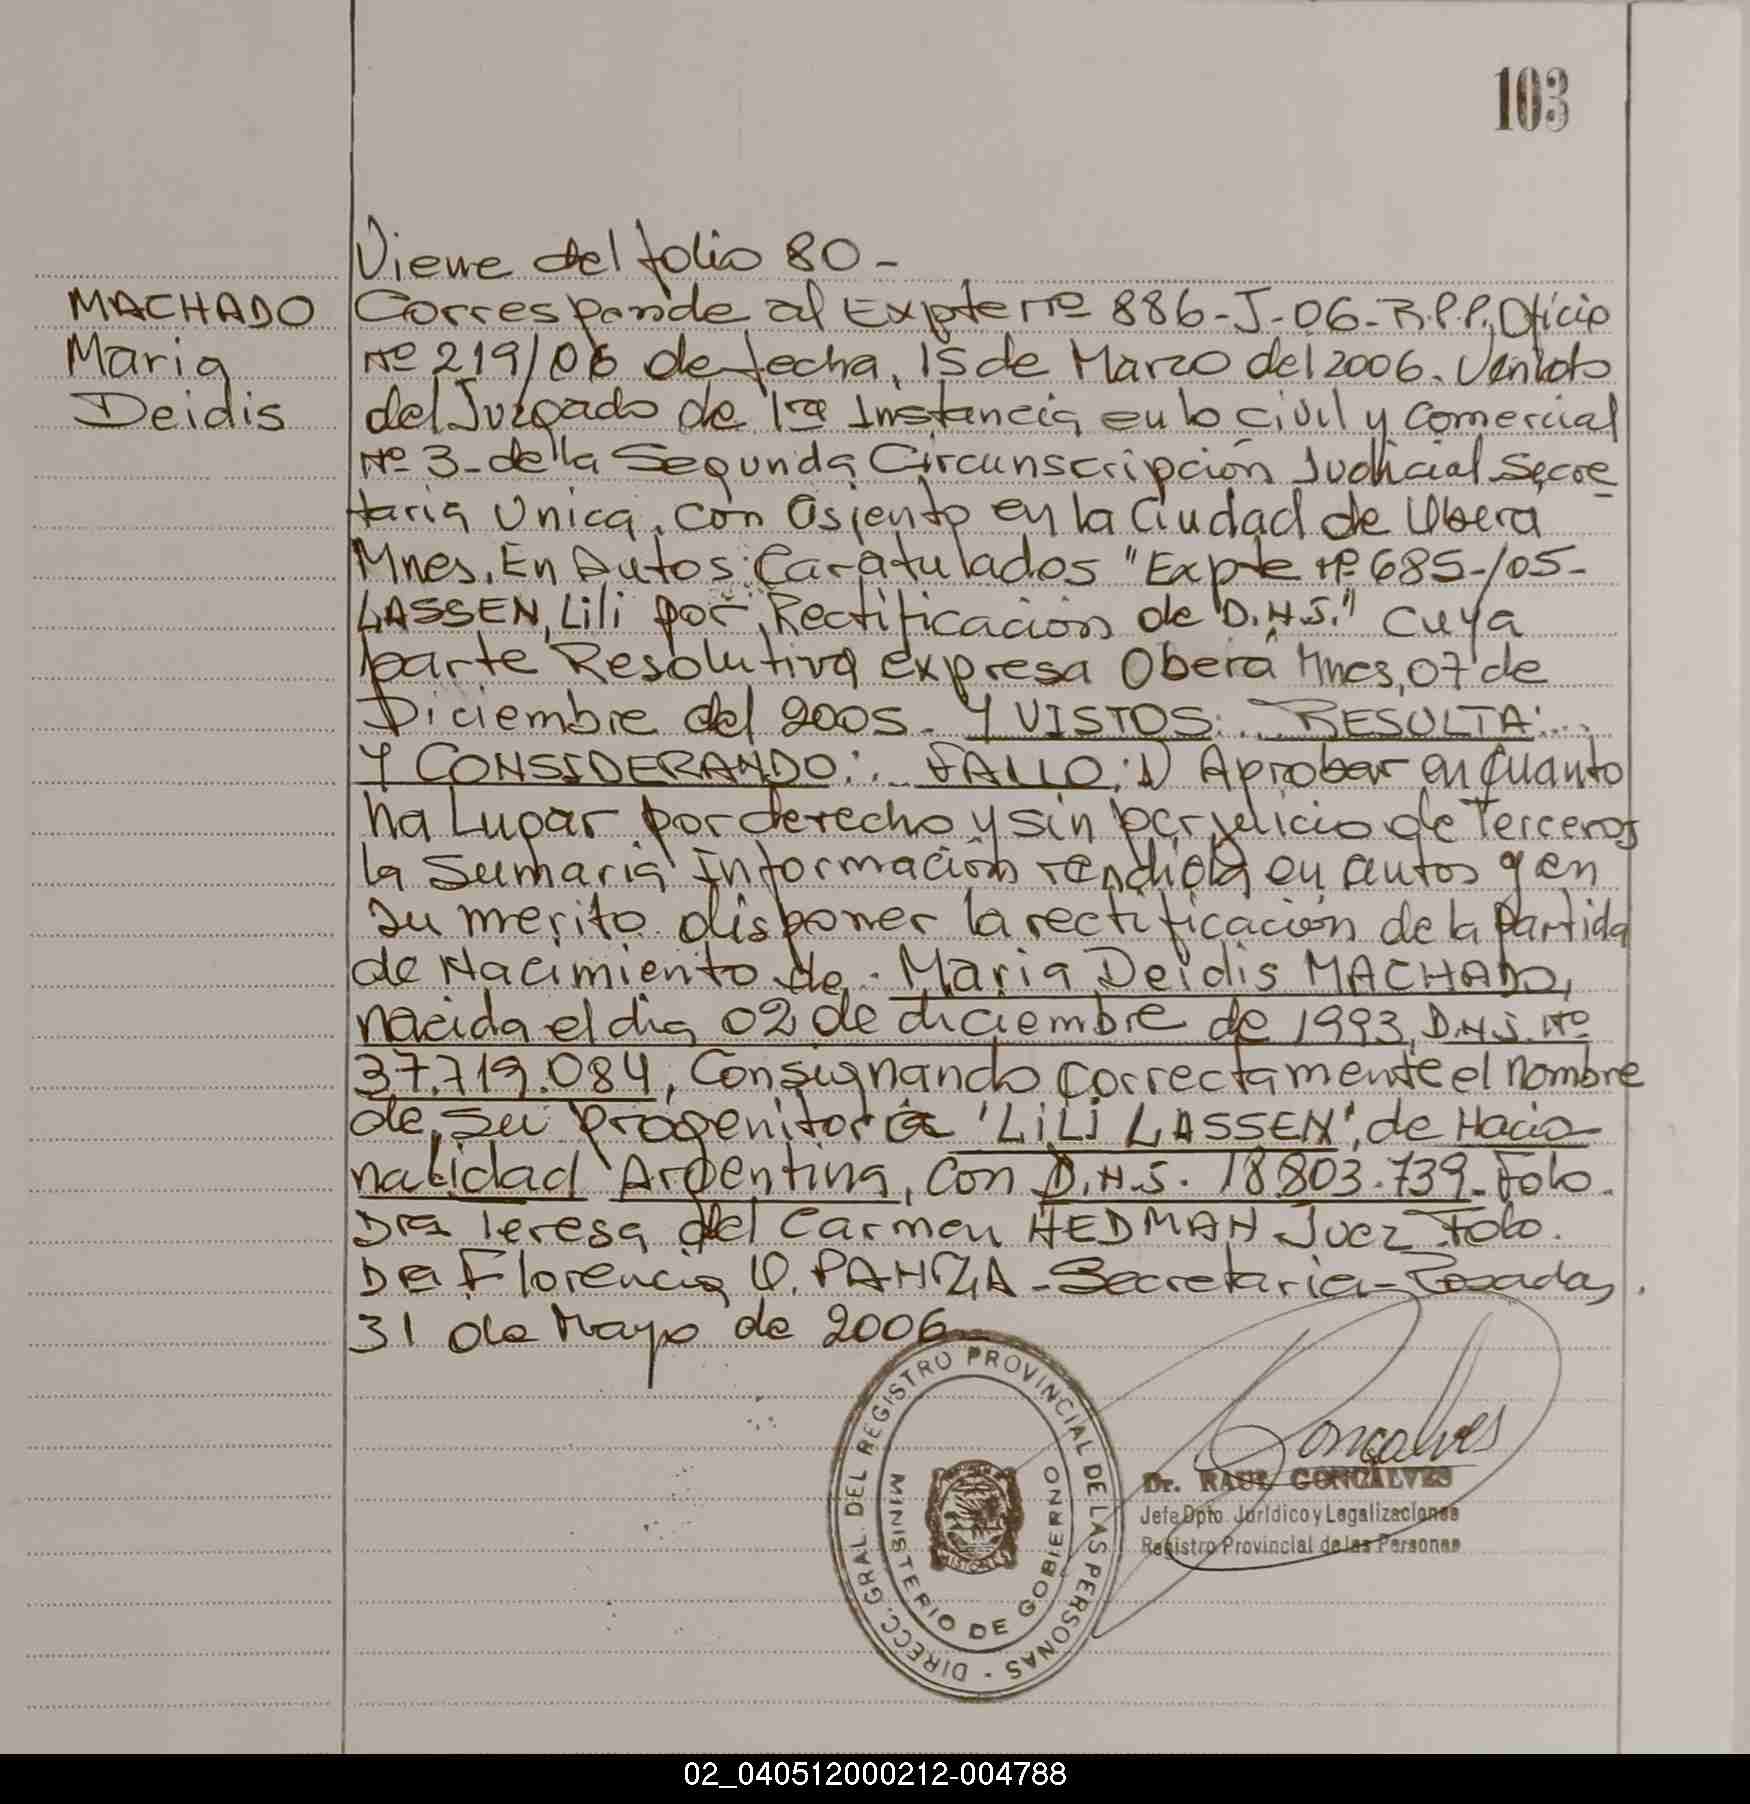 103
Viene del folio 80-
MACHADO
Maria
Deidis
Corresponde al Expte nº 886-J-06-R.P.P., Oficio
Nº 219/06 de fecha, 15 de Marzo del 2006.
del Juzgado de 1ra Instancia en lo Civil y Comercial
Nº 3- de la Segunda Circunscripción Judicial Secre
taria Unica, con Asiento en la Ciudad de Obera
Mnes. En Autos: Caratulados "Expte Nº 685-/05-
LASSEN, Lili por, Rectificación de D.N.I." Cuya
parte Resolutiva expresa Obera Mnes, 07 de
Diciembre del 2005. Y VISTOS:... RESULTA:...
Y CONSIDERANDO:... FALLO: 1) Aprobar en cuanto
ha Lugar por derecho y sin perjuicio de Terceros
la Sumaria Información rendida en autos y en
su merito disponer la rectificación de la Partida
de Nacimiento de Maria Deidis MACHADO,
nacida el dia 02 de diciembre de 1993, D.N.I. Nº
37.719.084, Consignando correctamente el nombre
de su progenitora "LiLi LASSEN", de Nacio
nalidad Argentina, con D.N.I. 18.803.739. Fdo.
Dra Teresa del Carmen HEDMAN Juez Fdo.
Dra Florencia V. PANZA - Secretaria - Posadas,
31 de Mayo de 2006-
DIRECC. GRAL. DEL REGISTRO PROVINCIAL DE LAS PERSONAS -
MINISTERIO DE GOBIERNO
MISIONES
Goncalves
Dr. RAUL GONCALVES
Jefe Dpto. Jurídico y Legalizaciones
Registro Provincial de las Personas
02_040512000212-004788